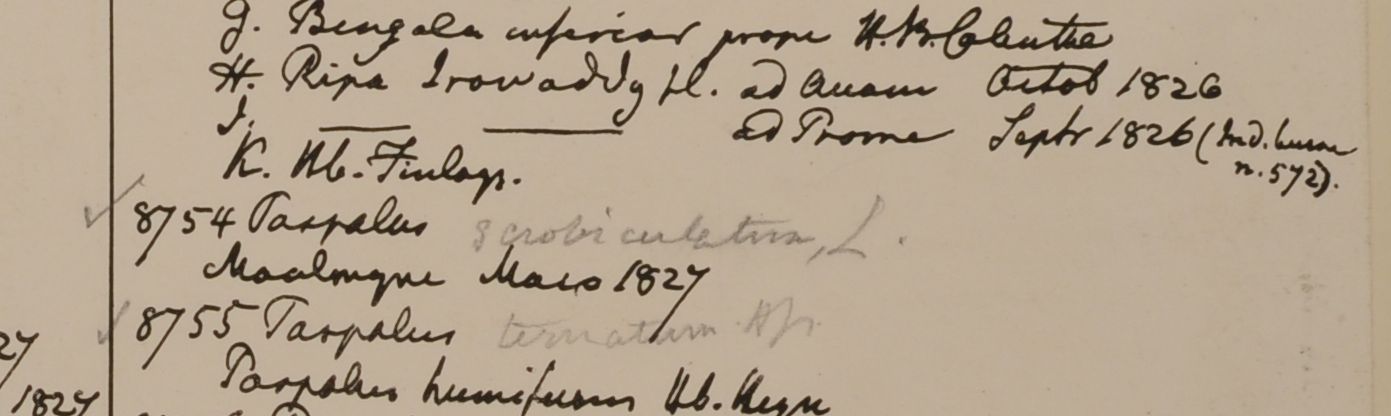 G. Bengala inferior prope H.B. Calcutta
H. Ripa Irowaddy fl. ad Avam Octob 1826
I. ——— ——— ad Prome Septr 1826 (Ind. burm
n. 572).
K. Hb. Finlays.
8754 Paspalus scrobiculatum, L.
Moalmyne Maio 1827
8755 Paspalus ternatum Hf.
Paspalus humifusus Hb. Heyn
27
1827